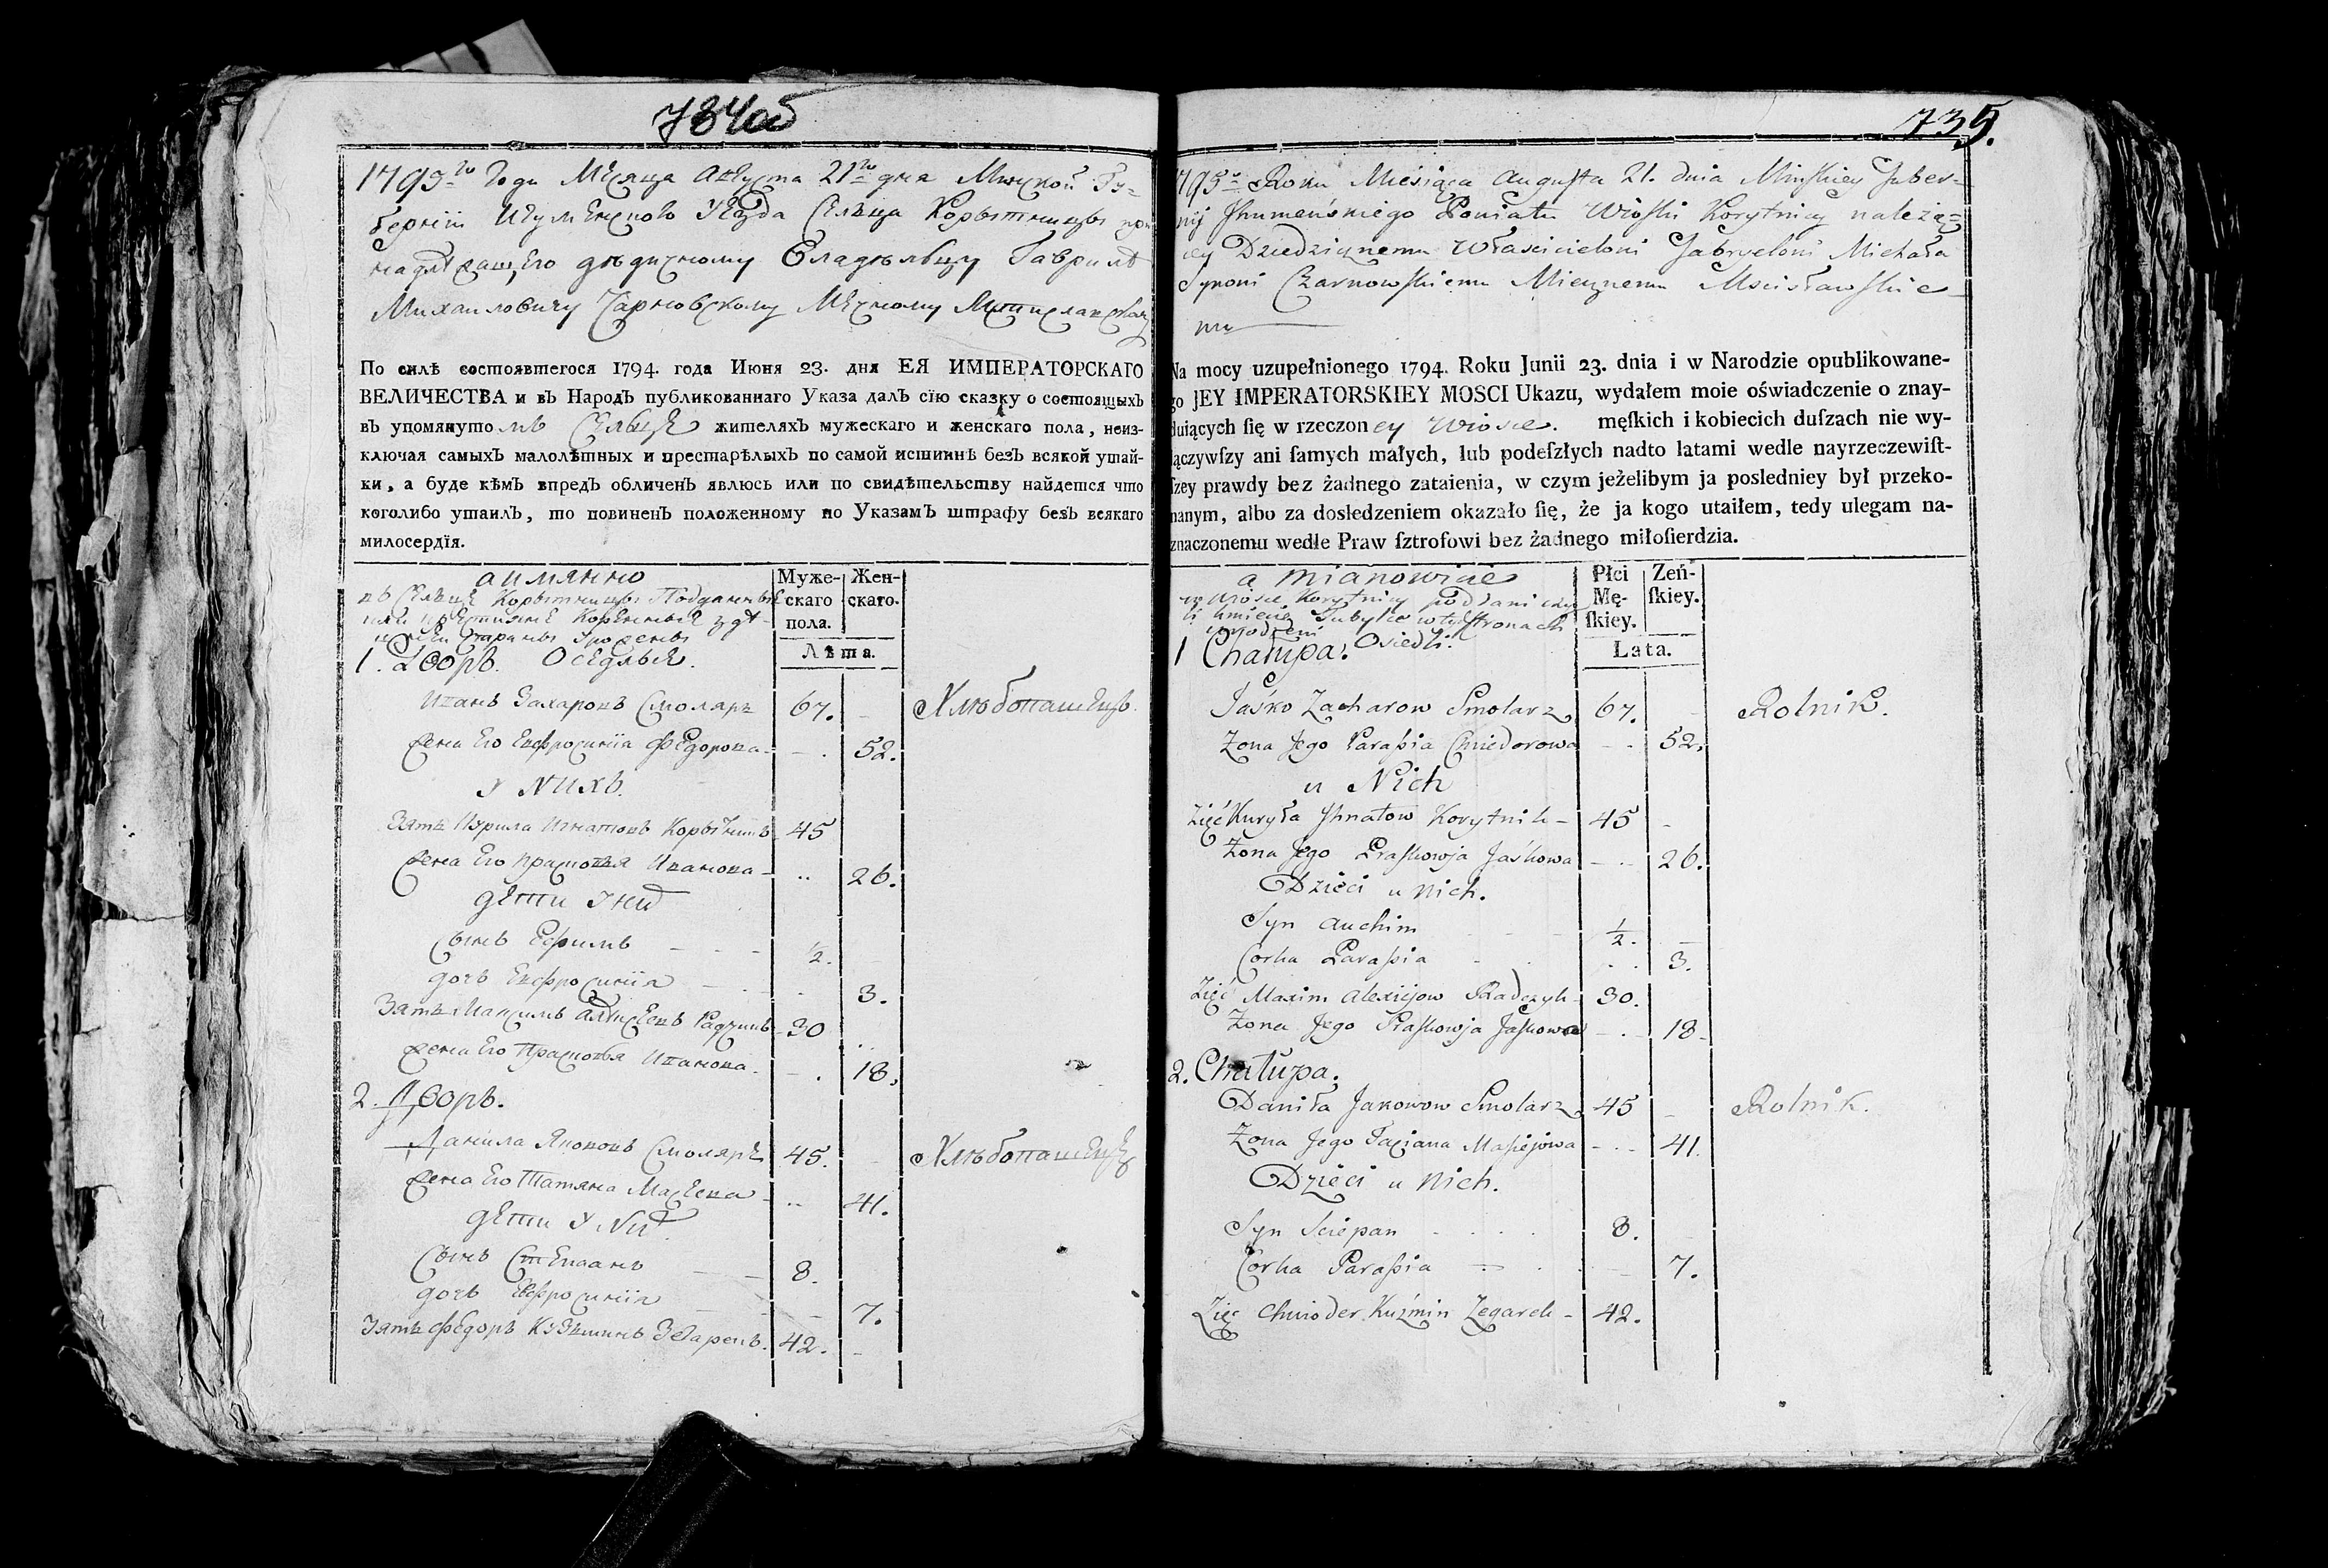 734об
1795го Года Месяца Августа 21го дня Минской Гу=
берніи Игуменскаго Уезда Сельца Корытницы при
надлежащего дѣдичному Владѣльцу Гаврилѣ
Михаиловичу Чарновскому Мечному Мстиславскому
По силѣ состоявшегося 1794. года Июня 23. дня ЕЯ ИМПЕРАТОРСКАГО
ВЕЛИЧЕСТВА и въ Народъ публикованнаго Указа далъ сїю сказку о состоящыхъ
въ упомянутомъ Сельце жителяхъ мужескаго и женскаго пола, неиз-
ключая самыхъ малолѣтных и престарѣлыхъ по самой истиннѣ безъ всякой утай-
ки, а буде кѣмъ впредъ обличенъ явлюсь или по свидѣтельству найдется что
коголибо утаилъ, то повиненъ положенному по Указамъ штрафу безъ всякаго
милосердїя.
а имянно
въ Сельце Корытницы Подданные
или крестияне Коренные здѣ-
шней Стараны Урожены
Муже-
скаго
пола.
Жен-
скаго.
Лѣта.
1. Дворъ. Оседлые.
Иванъ Захаровъ Смоляръ 67. Хлѣбопашецъ.
Жена Его Евфросиніа Федорова 52.
У Нихъ.
Зять Курила Игнатовъ Корытникъ 45
Жена Его Прасковья Иванова 26.
дети У них
Сынъ Ефимъ 1/2.
дочь Евфросиніа 3.
Зять Максимъ Алексеевъ Радчикъ 30
Жена Его Прасковья Иванова 18.
2. Дворъ.
Данила Якововъ Смоляръ 45. Хлѣбопашецъ
Жена Его Татяна Масеева 41.
дети У Них.
Сынъ Степанъ 8.
дочь Евфросиніа 7.
Зять Федоръ Кузьминъ 42.
735.
1795o Roku Miesiąca Augusta 21. dnia Minskiey Guber=
nij Jhumeńskiego Powiatu Wioski Korytnicy należą=
cey Dziedzicznemu Właścicielowi Gabryelowi Michała
Synowi Czarnowskiemu Miecznemu Mscisławskie
mu
Na mocy uzupełnionego 1794. Roku Junii 23. dnia i w Narodzie opublikowane-
go JEY IMPERATORSKIEY MOSCI Ukazu, wydałem moie oświadczenie o znay-
duiących ſię w rzeczoney Wiosce. męſkich i kobiecich duſzach nie wy-
łączywſzy ani ſamych małych, lub podeſzłych nadto latami wedle nayrzeczewiſt-
ſzey prawdy bez żadnego zataienia, w czym jeżelibym ja posledniey był przeko-
nanym, albo za dosledzeniem okazało ſię, że ja kogo utaiłem, tedy ulegam na-
znaczonemu wedle Praw ſztrofowi bez żadnego miłoſierdzia.
a mianowicie
w Wiosce Korytnicy poddani czy
li kmiecie Tubylce w tych stronach
urodzeni
Płci
Mę-
ſkiey.
Zeń-
ſkiey.
Lata.
1 Chałupa. Osiedli.
Jaśko Zacharow Smolarz 67. Rolnik.
Zona Jego Paraßia Chwiedorowa 52.
u Nich
Zięć Kuryła Jhnatow Korytnik 45
Zona Jego Praskowja Jaśkowa 26.
Dzieci u Nich.
Syn Auchim 1/2.
Corka Paraßia 3.
Zięć Maxim Alexiejow Radczyk 30.
Zona Jego Praskowja Jaśkowa 18
2. Chałupa.
Daniła Jakowow Smolarz 45 Rolnik.
Zona Jego Taciana Masiejowa 41.
Dzieci u Nich.
Syn Sciepan 8.
Corka Paraßia 7.
Zięc Chwioder Kuźmin Zegarek 42.